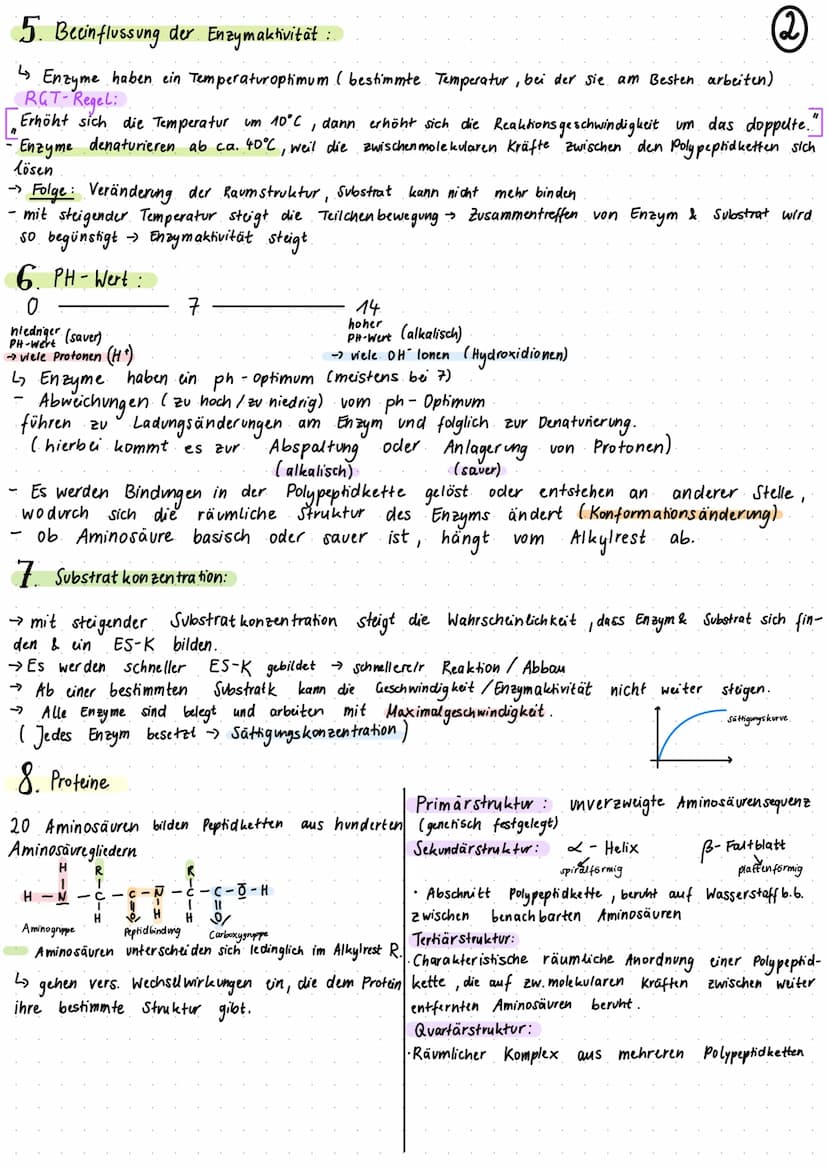 5. Beeinflussung der Enzymaktivität :
2
↳ Enzyme haben ein Temperaturoptimum ( bestimmte Temperatur , bei der sie am Besten arbeiten)
RGT-Regel:
„Erhöht sich die Temperatur um 10°C , dann erhöht sich die Reaktionsgeschwindigkeit um das doppelte."
- Enzyme denaturieren ab ca. 40°C , weil die zwischenmolekularen Kräfte zwischen den Polypeptidketten sich
lösen
→ Folge: Veränderung der Raumstruktur , Substrat kann nicht mehr binden
- mit steigender Temperatur steigt die Teilchenbewegung → Zusammentreffen von Enzym & Substrat wird
so begünstigt → Enzymaktivität steigt
6. PH - Wert :
0 7 14
niedriger PH-Wert (sauer)
→ viele Protonen (H⁺)
hoher PH-Wert (alkalisch)
→ viele OH⁻ Ionen (Hydroxidionen)
↳ Enzyme haben ein ph - optimum (meistens bei 7)
- Abweichungen ( zu hoch / zu niedrig) vom ph - Optimum
führen zu Ladungsänderungen am Enzym und folglich zur Denaturierung.
( hierbei kommt es zur Abspaltung oder Anlagerung von Protonen)
(alkalisch) (sauer)
- Es werden Bindungen in der Polypeptidkette gelöst oder entstehen an anderer Stelle ,
wodurch sich die räumliche Struktur des Enzyms ändert (Konformationsänderung)
- ob Aminosäure basisch oder sauer ist , hängt vom Alkylrest ab.
7. Substratkonzentration:
→ mit steigender Substratkonzentration steigt die Wahrscheinlichkeit , dass Enzym & Substrat sich fin-
den & ein ES-K bilden.
→ Es werden schneller ES-K gebildet → schnellere/r Reaktion / Abbau
→ Ab einer bestimmten Substratk kann die Geschwindigkeit / Enzymaktivität nicht weiter steigen.
→ Alle Enzyme sind belegt und arbeiten mit Maximalgeschwindigkeit.
( Jedes Enzym besetzt → Sättigungskonzentration )
Sättigungskurve
8. Proteine
20 Aminosäuren bilden Peptidketten aus hunderten
Aminosäuregliedern
H R R
H - N - C - C - N - C - C - O - H
H O H H O
Aminogruppe Peptidbindung Carboxygruppe
Aminosäuren unterscheiden sich lediglich im Alkylrest R.
↳ gehen vers. Wechselwirkungen ein, die dem Protein
ihre bestimmte Struktur gibt.
Primärstruktur : unverzweigte Aminosäurensequenz
(genetisch festgelegt)
Sekundärstruktur: α - Helix β - Faltblatt
spiralförmig plattenförmig
· Abschnitt Polypeptidkette , beruht auf Wasserstoff b.b.
zwischen benachbarten Aminosäuren
Tertiärstruktur:
· Charakteristische räumliche Anordnung einer Polypeptid-
kette , die auf zw. molekularen Kräften zwischen weiter
entfernten Aminosäuren beruht.
Quartärstruktur:
· Räumlicher Komplex aus mehreren Polypeptidketten